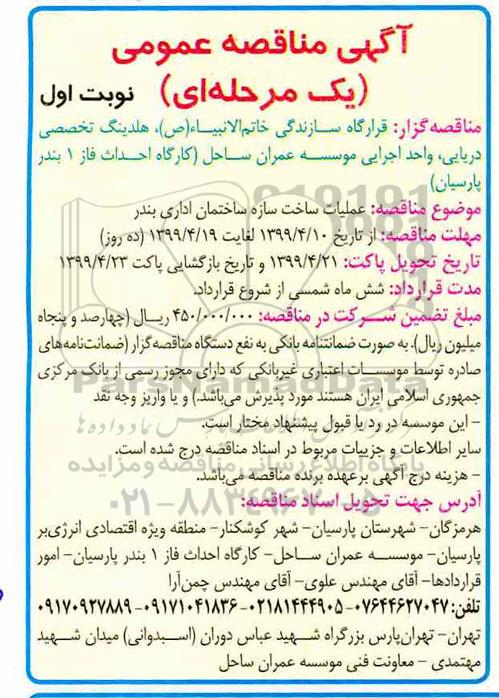 آگهی مناقصه عمومی
(یک مرحله‌ای) نوبت اول
مناقصه‌گزار: قرارگاه سازندگی خاتم‌الانبیاء(ص)، هلدینگ تخصصی
دریایی، واحد اجرایی موسسه عمران ساحل (کارگاه احداث فاز ۱ بندر
پارسیان)
موضوع مناقصه: عملیات ساخت سازه ساختمان اداری بندر
مهلت مناقصه: از تاریخ ۱۳۹۹/۴/۱۰ لغایت ۱۳۹۹/۴/۱۹ (ده روز)
تاریخ تحویل پاکت: ۱۳۹۹/۴/۲۱ و تاریخ بازگشایی پاکت ۱۳۹۹/۴/۲۳
مدت قرارداد: شش ماه شمسی از شروع قرارداد.
مبلغ تضمین شرکت در مناقصه: ۴۵۰/۰۰۰/۰۰۰ ریال (چهارصد و پنجاه
میلیون ریال)، به صورت ضمانتنامه بانکی به نفع دستگاه مناقصه‌گزار (ضمانت‌نامه‌های
صادره توسط موسسات اعتباری غیربانکی که دارای مجوز رسمی از بانک مرکزی
جمهوری اسلامی ایران هستند مورد پذیرش می‌باشد.) و یا واریز وجه نقد
- این موسسه در رد یا قبول پیشنهاد مختار است.
سایر اطلاعات و جزییات مربوط در اسناد مناقصه درج شده است.
- هزینه درج آگهی برعهده برنده مناقصه می‌باشد.
آدرس جهت تحویل اسناد مناقصه:
هرمزگان- شهرستان پارسیان- شهر کوشکنار- منطقه ویژه اقتصادی انرژی‌بر
پارسیان- موسسه عمران ساحل- کارگاه احداث فاز ۱ بندر پارسیان- امور
قراردادها- آقای مهندس علوی- آقای مهندس چمن‌آرا
تلفن: ۰۷۶۴۴۶۲۷۰۴۷-۰۲۱۸۱۴۴۴۹۰۵-۰۹۱۷۱۰۴۱۸۳۶-۰۹۱۷۰۹۲۷۸۸۹
تهران- تهران‌پارس بزرگراه شهید عباس دوران (اسبدوانی) میدان شهید
مهتمدی - معاونت فنی موسسه عمران ساحل
ParsNamadData
پایگاه اطلاع رسانی مناقصه و مزایده